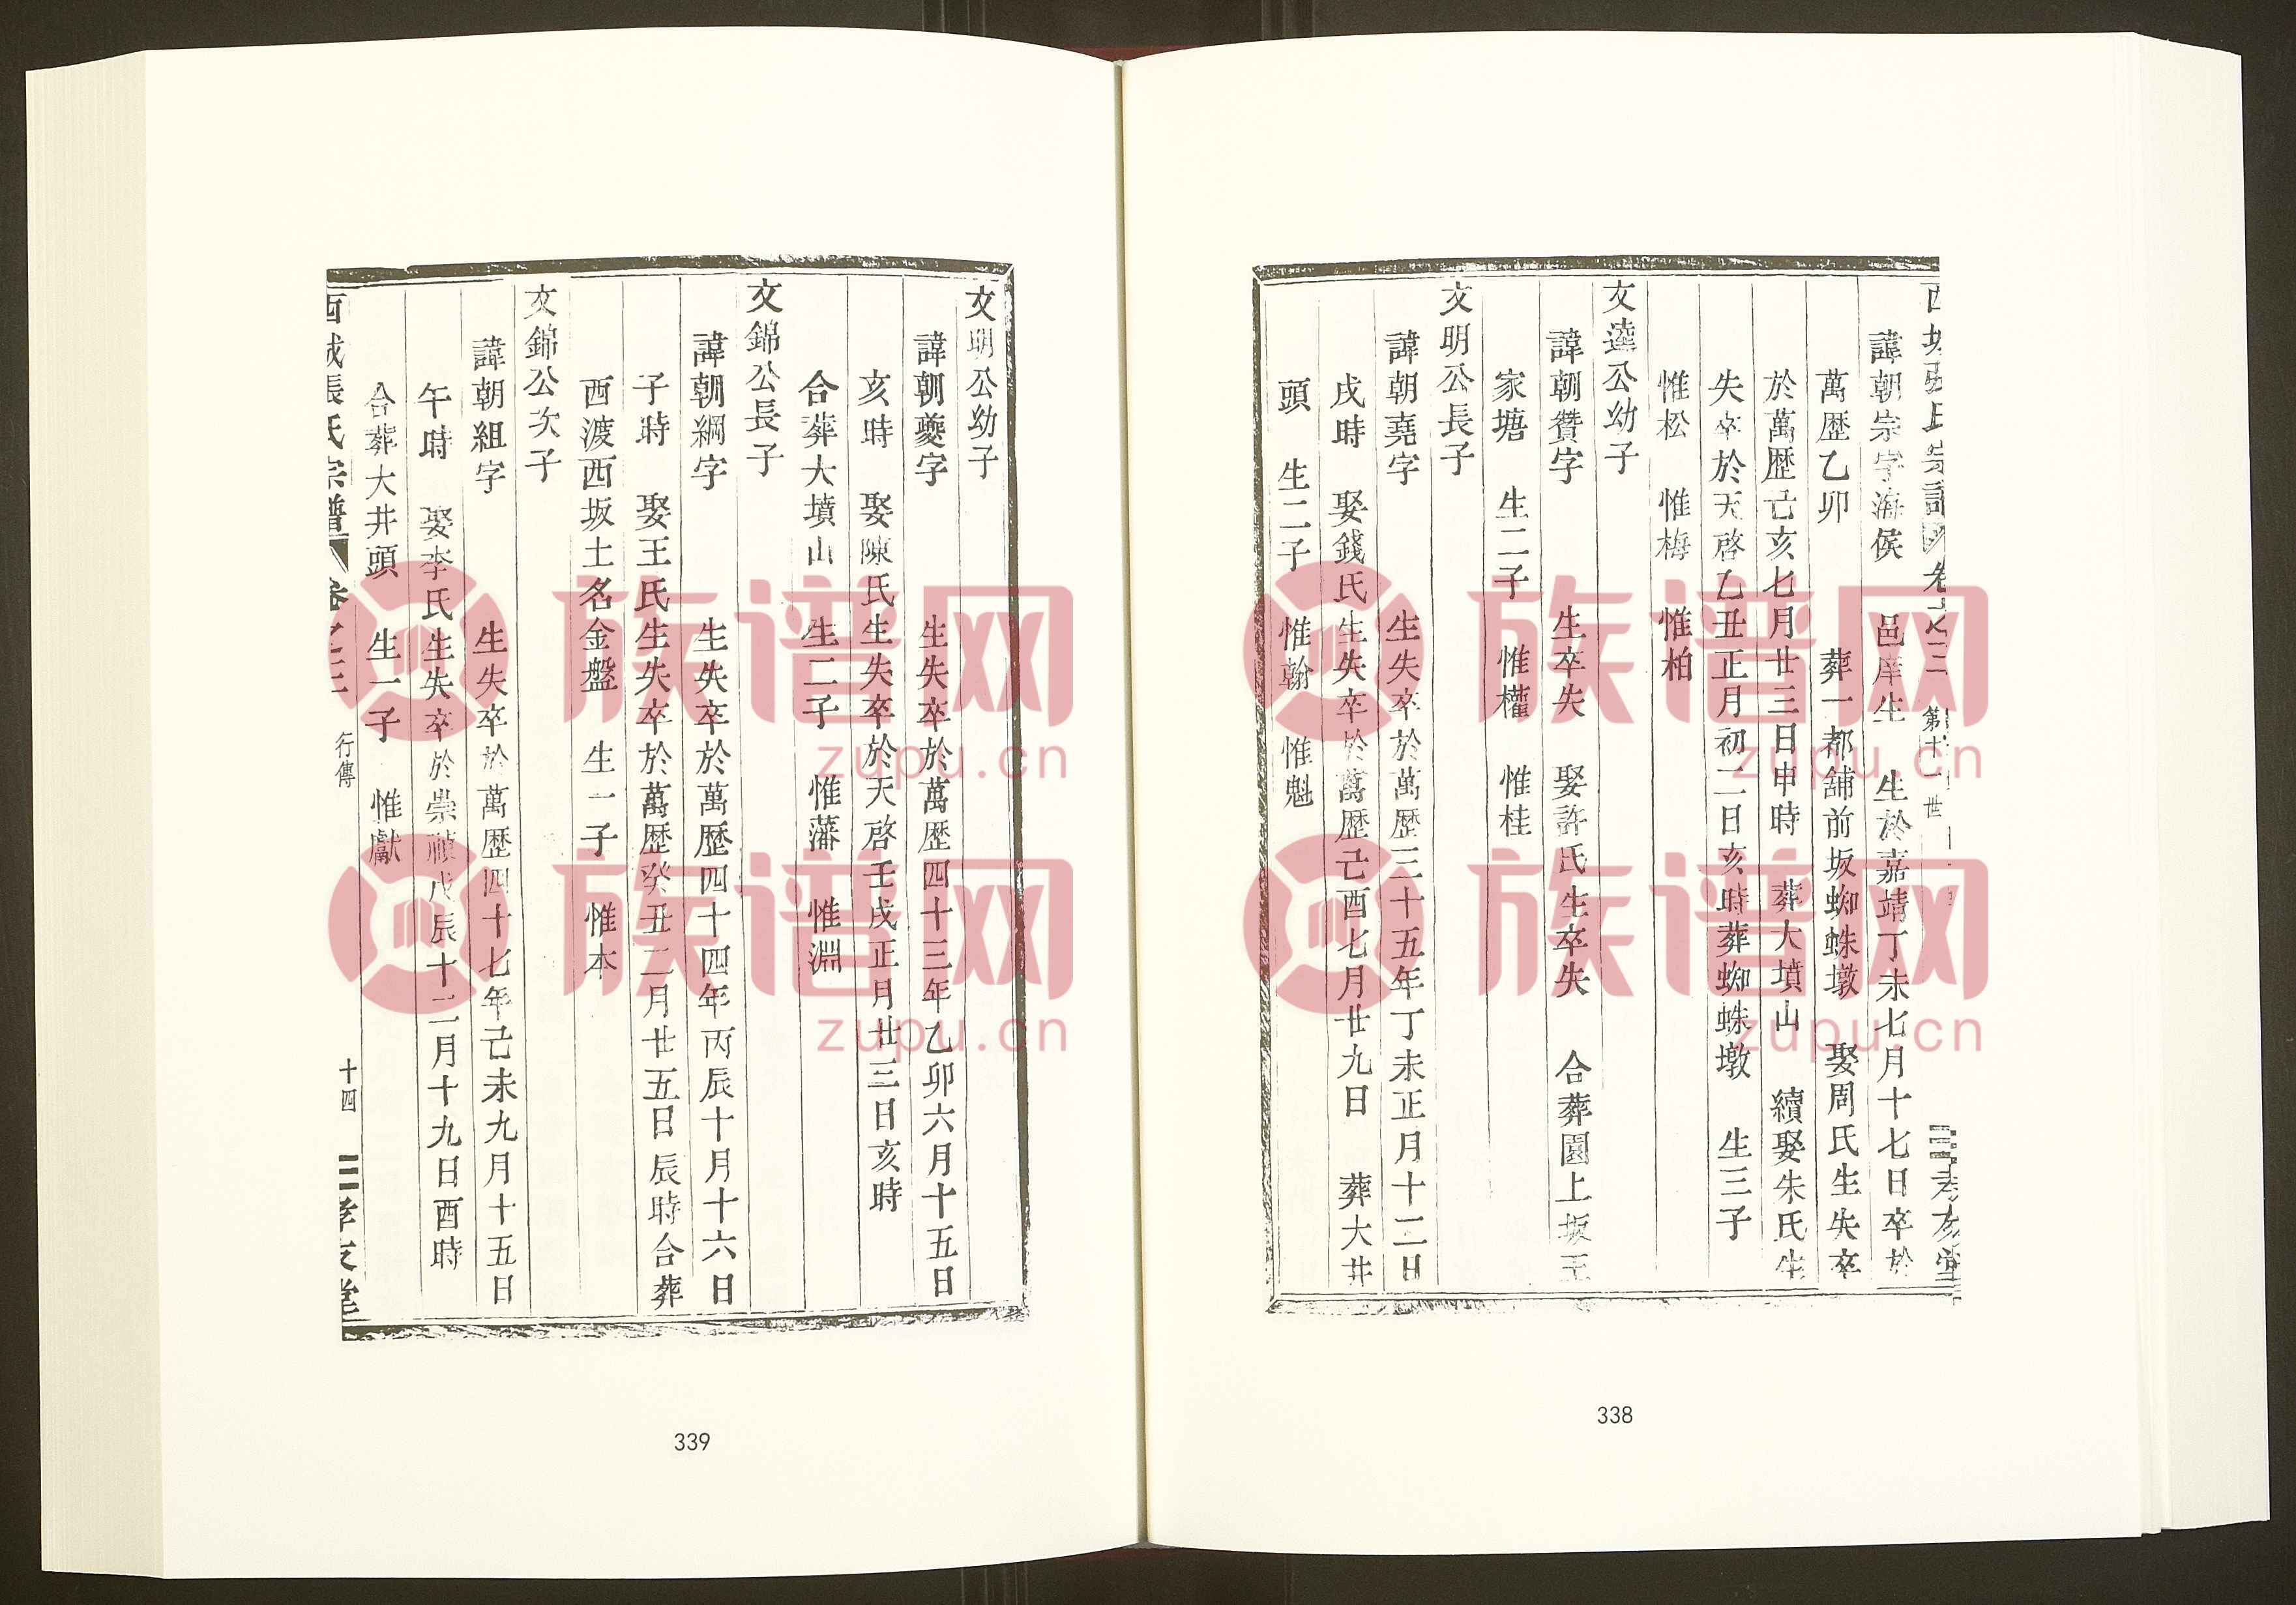 諱朝宗字海侯 邑庠生 生於嘉靖丁未七月十七日卒於
萬歷乙卯 葬一都舖前坂蜘蛛墩 娶周氏生失卒
於萬歷己亥七月廿三日申時 葬大墳山 續娶朱氏生
失卒於天啓乙丑正月初二日亥時葬蜘蛛墩 生三子
惟松 惟梅 惟柏
文達公幼子
諱朝贊字 生卒失 娶許氏生卒失 合葬園上坂王
家塘 生二子 惟權 惟桂
文明公長子
諱朝堯字 生失卒於萬歷三十五年丁未正月十二日
戌時 娶錢氏生失卒於萬歷己酉七月廿九日 葬大井
頭 生二子 惟翰 惟魁
338
文明公幼子
諱朝夔字 生失卒於萬歷四十三年乙卯六月十五日
亥時 娶陳氏生失卒於天啓壬戌正月廿三日亥時
合葬大墳山 生二子 惟藩 惟淵
文錦公長子
諱朝綱字 生失卒於萬歷四十四年丙辰十月十六日
子時 娶王氏生失卒於萬歷癸丑二月廿五日辰時合葬
西渡西坂土名金盤 生一子 惟本
文錦公次子
諱朝組字 生失卒於萬歷四十七年己未九月十五日
午時 娶李氏生失卒於崇禎戊辰十二月十九日酉時
合葬大井頭 生一子 惟獻
西城張氏宗譜 卷之三 行傳 十四 孝友堂
339
族谱网
zupu.cn
族谱网
zupu.cn
族谱网
zupu.cn
族谱网
zupu.cn